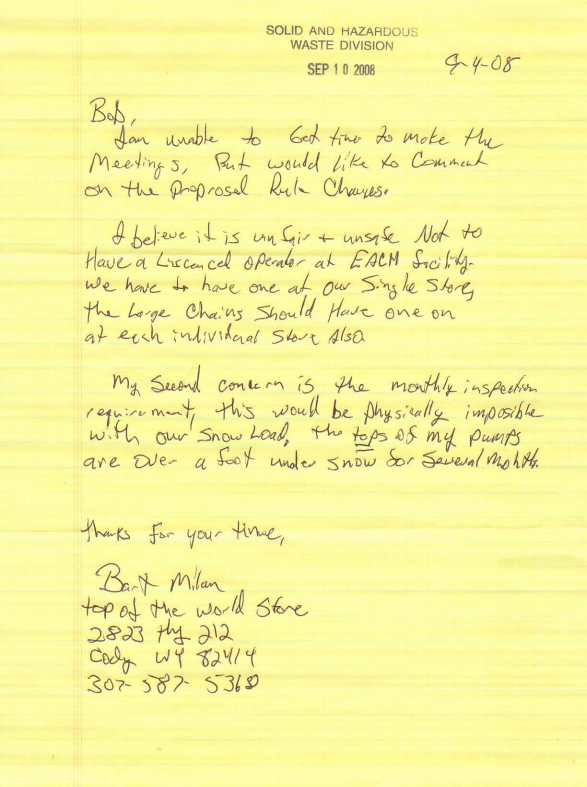 SOLID AND HAZARDOUS
WASTE DIVISION
SEP 10 2008
9-4-08
Bob,
I am unable to Get time to make the
Meetings, But would like to Comment
on the Proposal Rule Changes.
I believe it is unfair + unsafe Not to
Have a Liscenced operator at EACH facility.
we have to have one at our Single Store,
the Large Chains Should Have one on
at each individual Store Also
My Second concern is the monthly inspection
requirement, this would be physically imposible
with our snow Load, the tops of my pumps
are over a foot under snow for Several Months.
thanks for your time,
Bart Milan
top of the world Store
2823 Hy 212
Cody WY 82414
307-587-5368